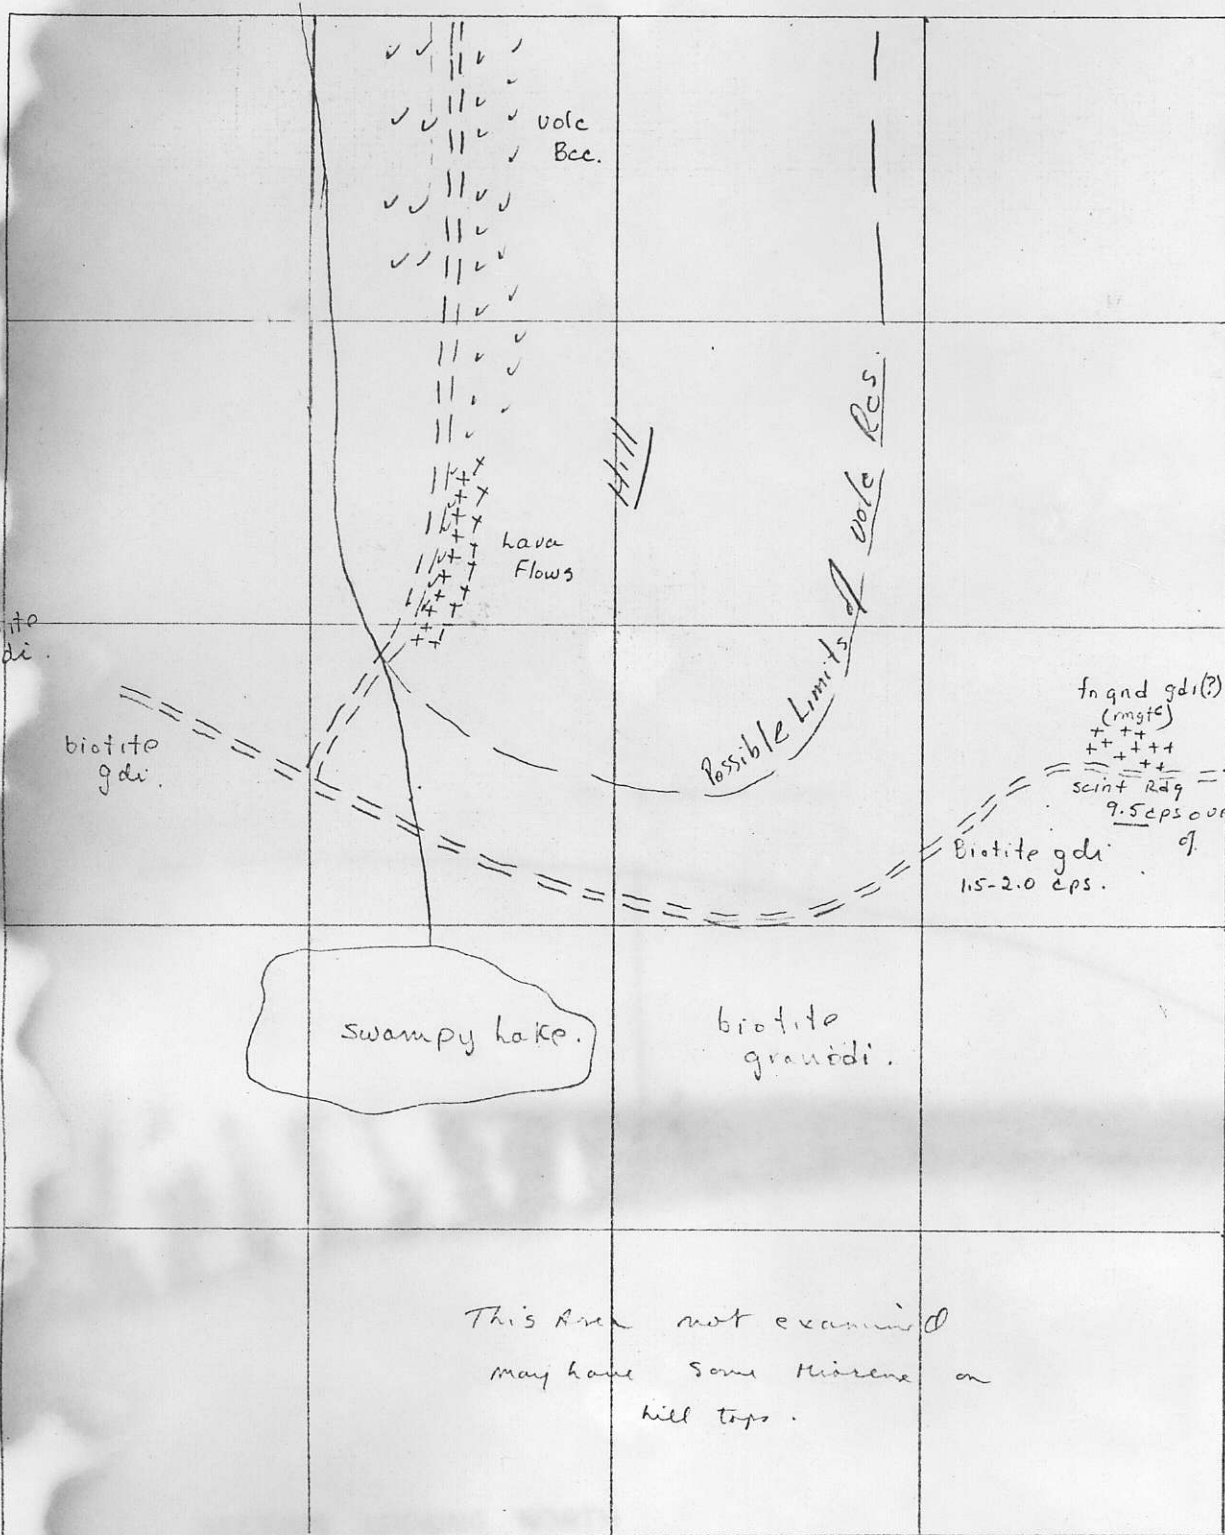 volc
Bcc.
Hill
Possible Limits of volc Rcs.
Lava
Flows
ite
di.
biotite
gdi.
fn gnd gdi(?)
(mgtc)
scint Rdg
9.5 cps ove
of
Biotite gdi
1.5-2.0 cps.
Swampy Lake.
biotite
granodi.
This Area not examined
may have some Miocene on
hill tops.